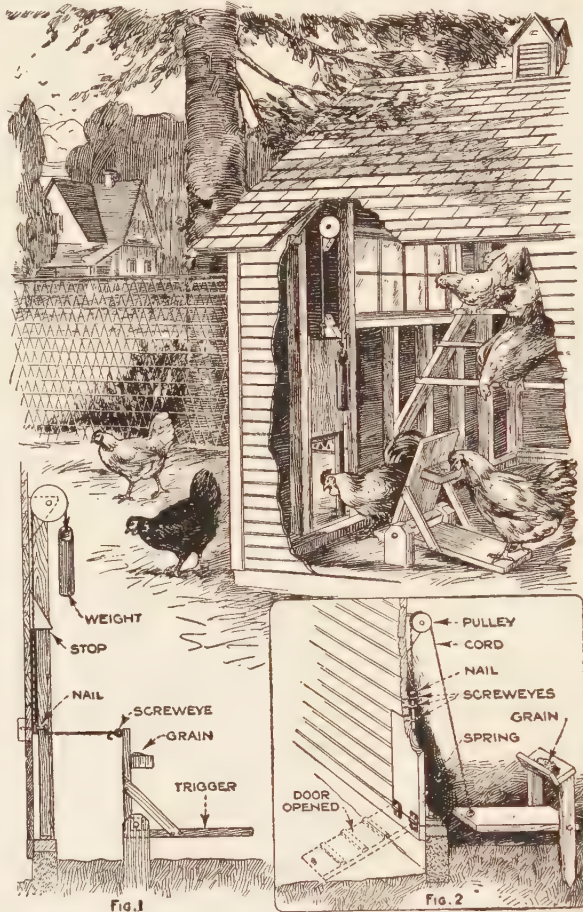 WEIGHT
STOP
NAIL
SCREWEYE
GRAIN
TRIGGER
FIG.1
PULLEY
CORD
NAIL
SCREWEYES
GRAIN
SPRING
DOOR
OPENED
FIG. 2